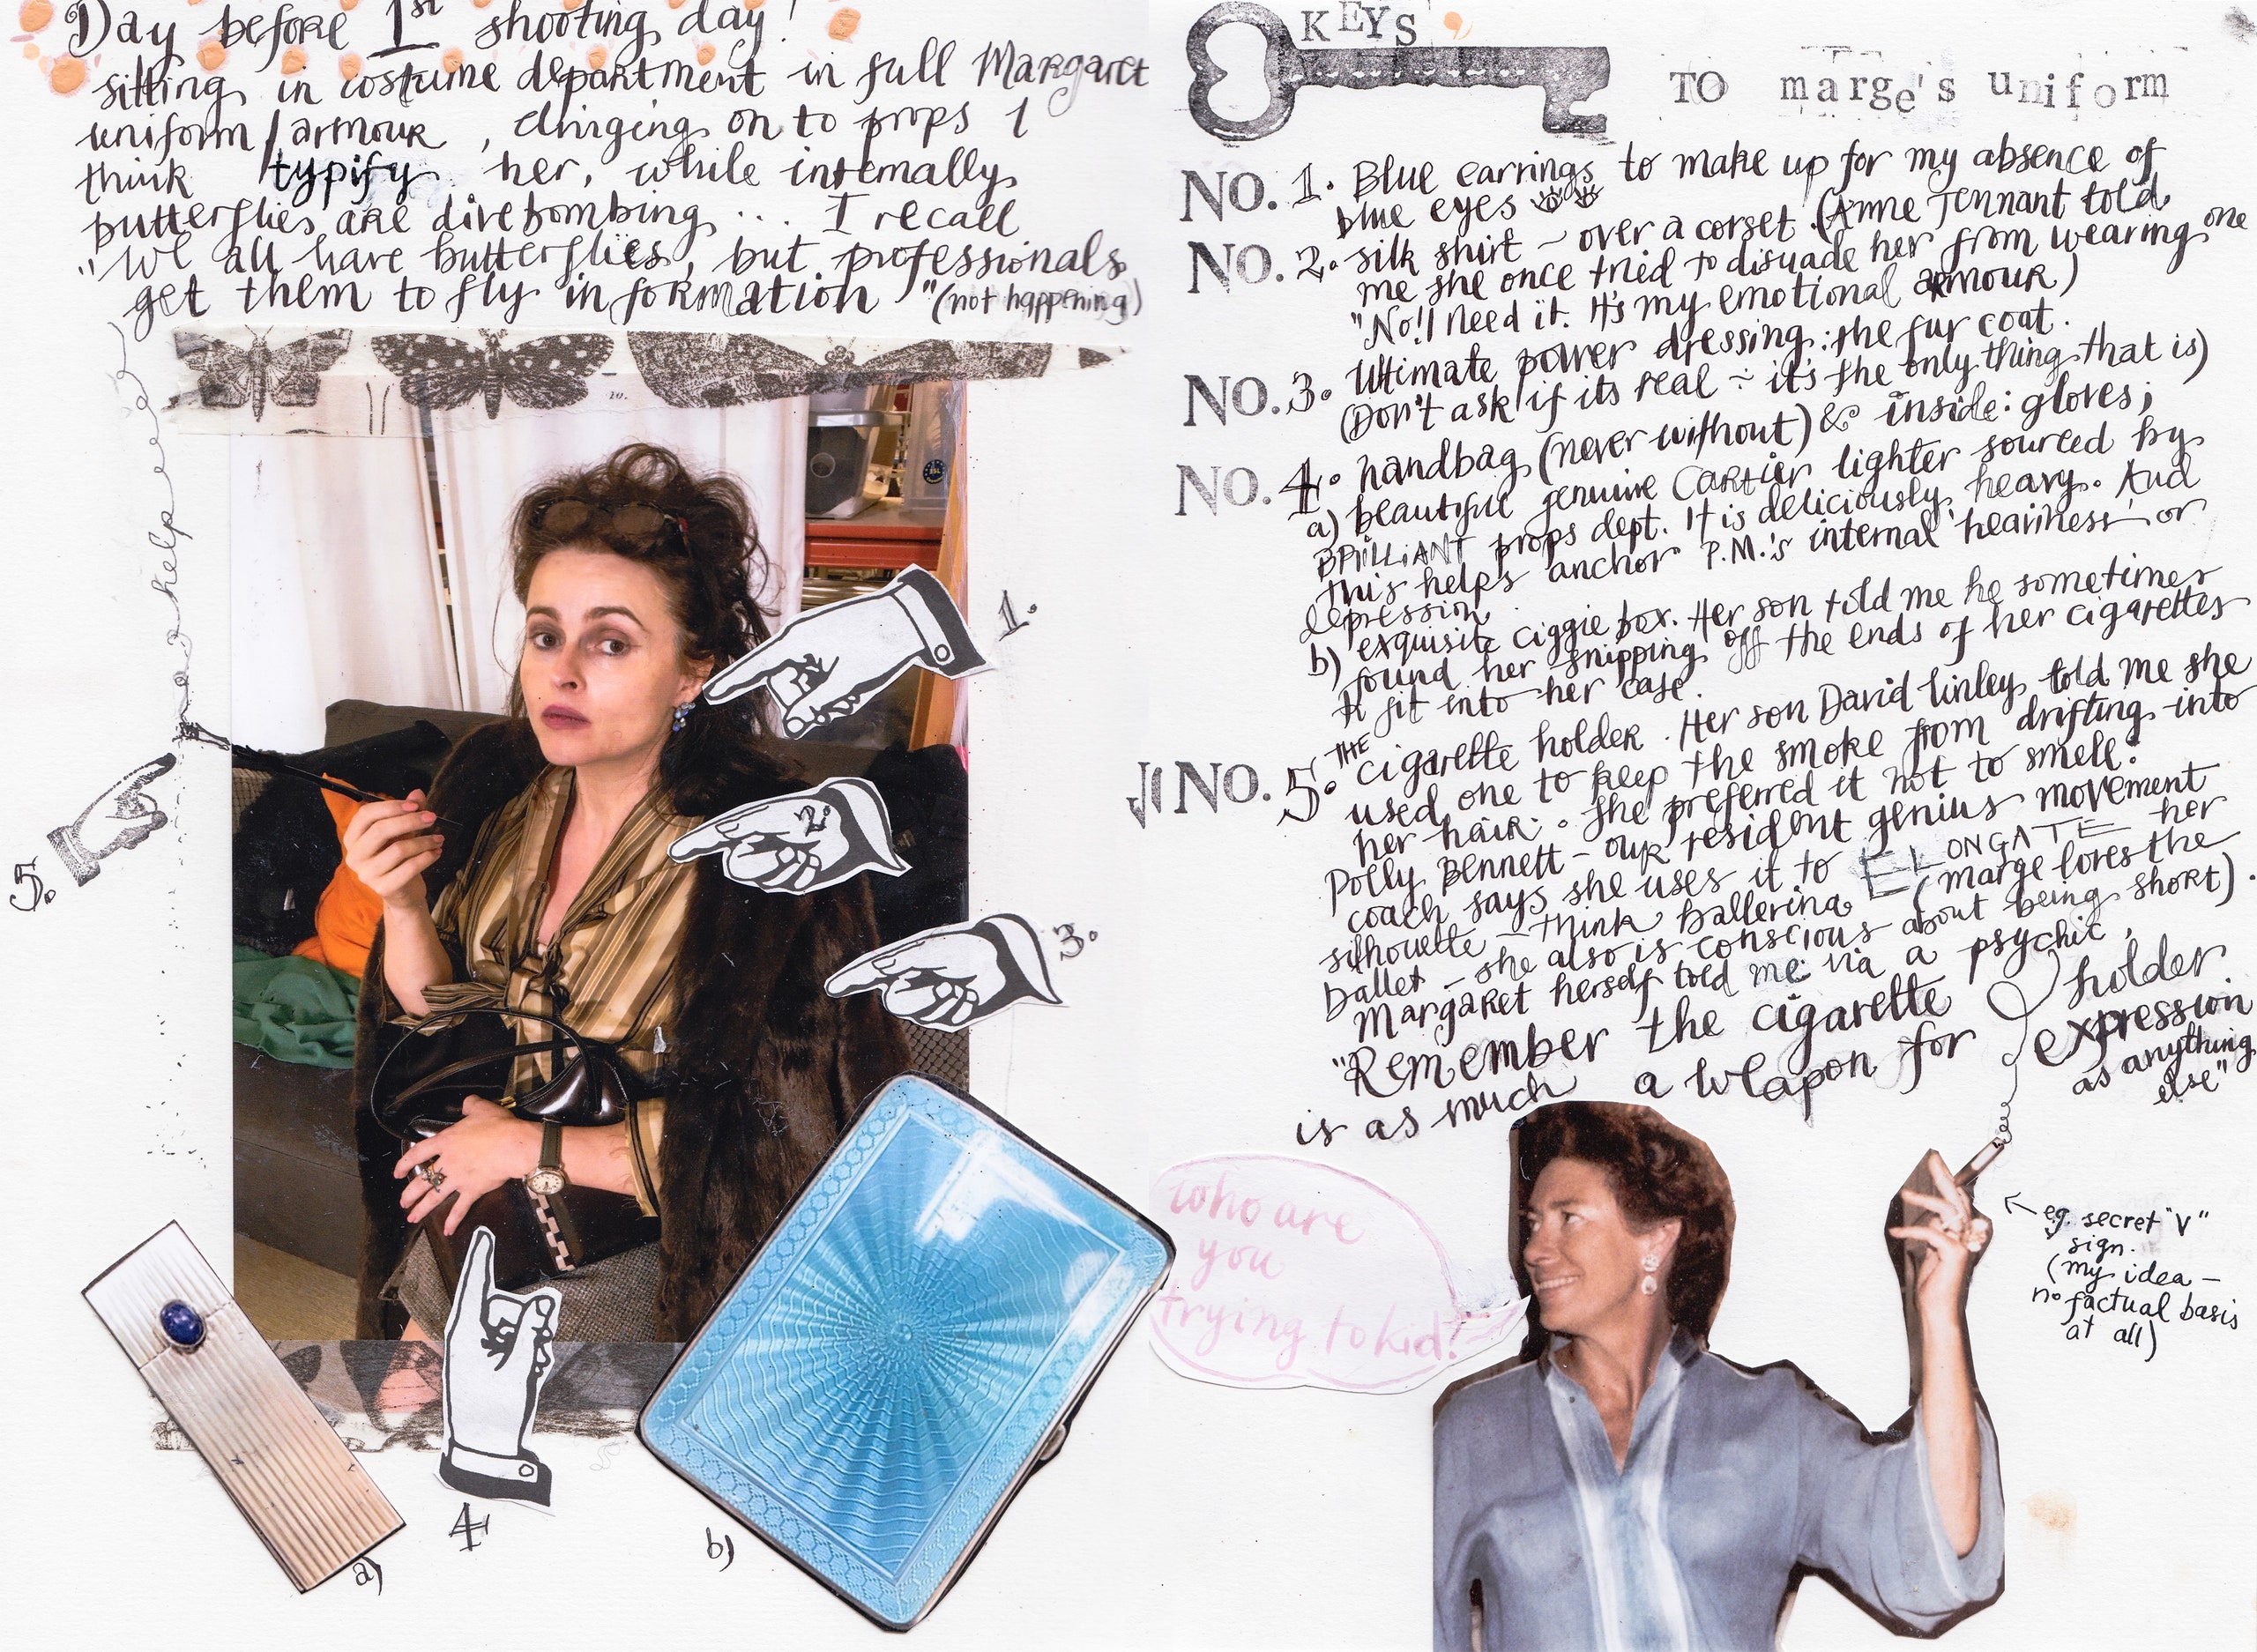 Day before 1st shooting day!
sitting in costume department in full Margaret
uniform / armour, clinging on to props I
think typify her, while internally
butterflies are divebombing ... I recall
"We all have butterflies, but professionals
get them to fly in formation" (not happening)
help
10.
1.
2.
3.
5.
4
a)
b)
KEYS
TO marge's uniform
NO. 1. Blue earrings to make up for my absence of
blue eyes
NO. 2. silk shirt - over a corset (Anne Tennant told
me she once tried to disuade her from wearing one
"No! I need it. It's my emotional armour)
NO. 3. Ultimate power dressing: the fur coat.
(Don't ask if its real - it's the only thing that is)
NO. 4. handbag (never without) & inside: gloves;
a) beautiful genuine Cartier lighter sourced by
BRILLIANT props dept. It is deliciously heavy. And
this helps anchor P.M.'s internal 'heaviness' or
depression
b) exquisite ciggie box. Her son told me he sometimes
found her snipping off the ends of her cigarettes
to fit into her case.
NO. 5. THE cigarette holder. Her son David Linley told me she
used one to keep the smoke from drifting into
her hair. She preferred it not to smell.
Polly Bennett - our resident genius movement
coach says she uses it to ELONGATE her
silhouette - think ballerina (marge loves the
ballet - she also is conscious about being short).
Margaret herself told me via a psychic,
"Remember the cigarette holder
is as much a weapon for expression
as anything
else"
who are
you
trying to kid!
eg. secret "V"
sign.
(my idea -
no factual basis
at all)